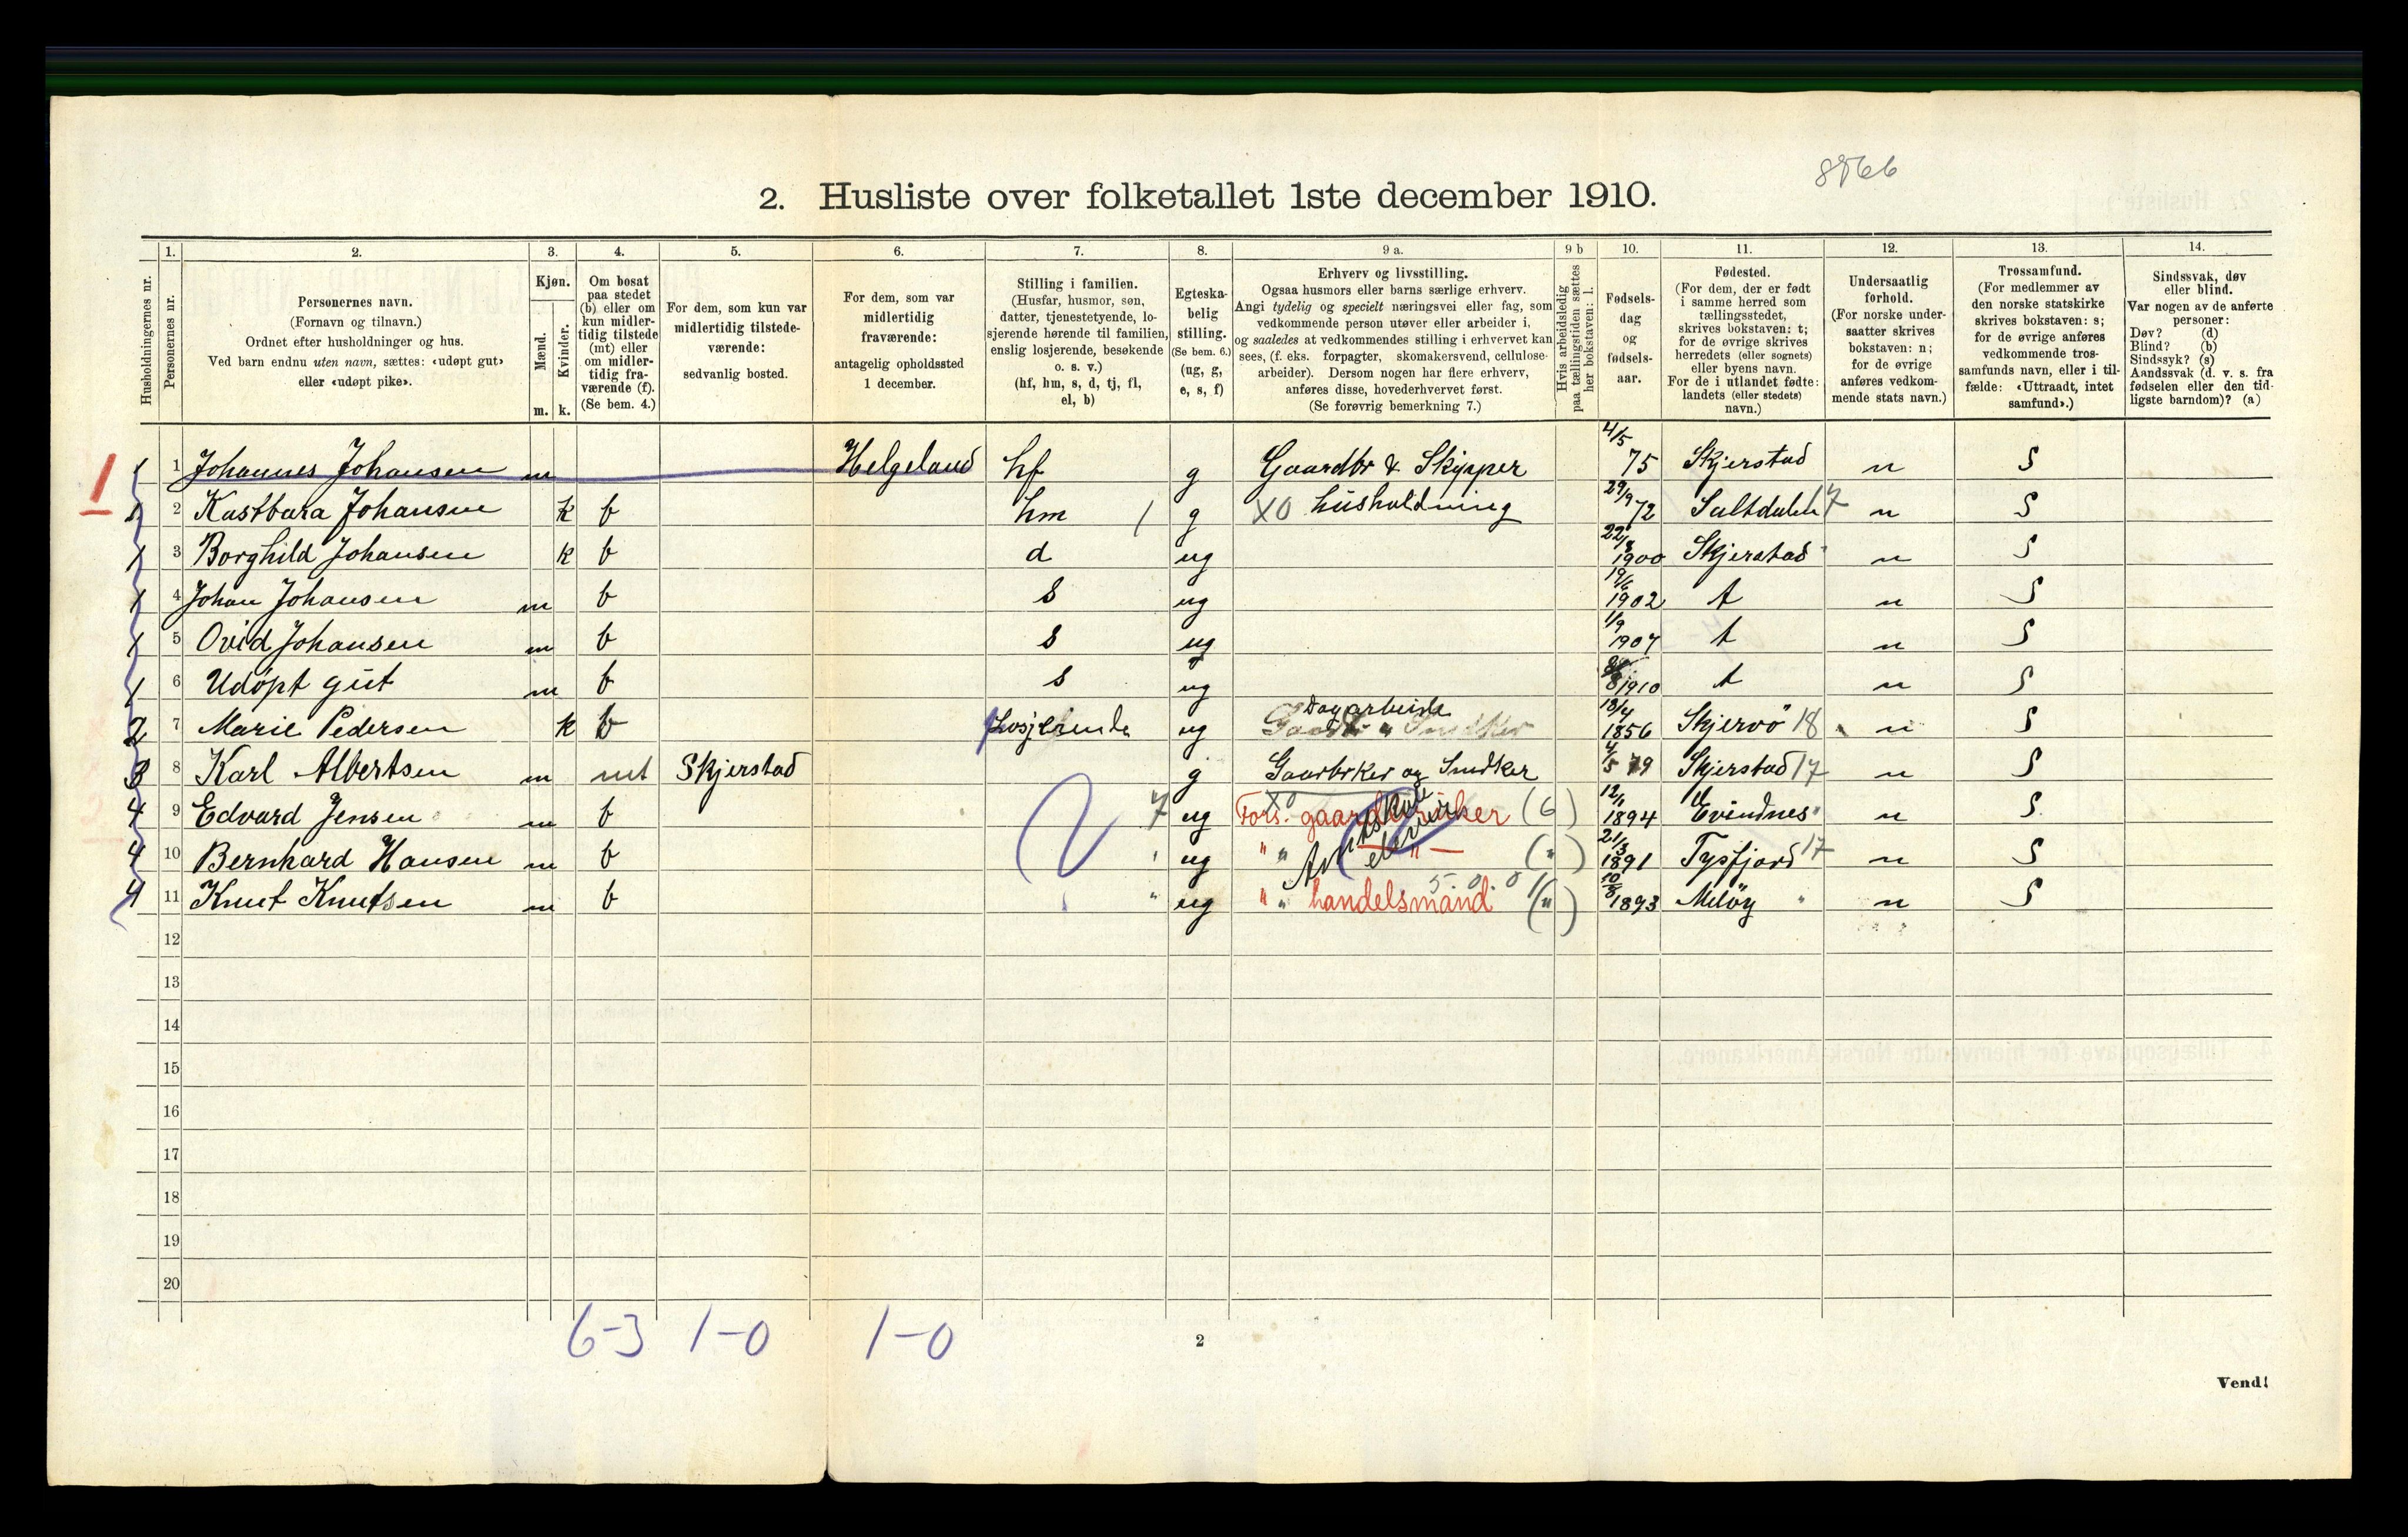 8866
2. Husliste over folketallet 1ste december 1910.
Husholdningernes nr.
1. Personernes nr.
2. Personernes navn.
(Fornavn og tilnavn.)
Ordnet efter husholdninger og hus.
Ved barn endnu uten navn, sættes: «udøpt gut»
eller «udøpt pike».
3. Kjøn.
Mænd. m.
Kvinder. k.
4. Om bosat
paa stedet
(b) eller om
kun midler-
tidig tilstede
(mt) eller
om midler-
tidig fra-
værende (f).
(Se bem. 4.)
5. For dem, som kun var
midlertidig tilstede-
værende:
sedvanlig bosted.
6. For dem, som var
midlertidig
fraværende:
antagelig opholdssted
1 december.
7. Stilling i familien.
(Husfar, husmor, søn,
datter, tjenestetyende, lo-
sjerende hørende til familien,
enslig losjerende, besøkende
o. s. v.)
(hf, hm, s, d, tj, fl,
el, b)
8. Egteska-
belig
stilling.
(Se bem. 6.)
(ug, g,
e, s, f)
9 a. Erhverv og livsstilling.
Ogsaa husmors eller barns særlige erhverv.
Angi tydelig og specielt næringsvei eller fag, som
vedkommende person utøver eller arbeider i,
og saaledes at vedkommendes stilling i erhvervet kan
sees, (f. eks. forpagter, skomakersvend, cellulose-
arbeider). Dersom nogen har flere erhverv,
anføres disse, hovederhvervet først.
(Se forøvrig bemerkning 7.)
9 b Hvis arbeidsledig
paa tællingstiden sættes
her bokstaven: l.
10. Fødsels-
dag
og
fødsels-
aar.
11. Fødested.
(For dem, der er født
i samme herred som
tællingsstedet,
skrives bokstaven: t;
for de øvrige skrives
herredets (eller sognets)
eller byens navn.
For de i utlandet fødte:
landets (eller stedets)
navn.)
12. Undersaatlig
forhold.
(For norske under-
saatter skrives
bokstaven: n;
for de øvrige
anføres vedkom-
mende stats navn.)
13. Trossamfund.
(For medlemmer av
den norske statskirke
skrives bokstaven: s;
for de øvrige anføres
vedkommende tros-
samfunds navn, eller i til-
fælde: «Uttraadt, intet
samfund».)
14. Sindssvak, døv
eller blind.
Var nogen av de anførte
personer:
Døv? (d)
Blind? (b)
Sindssyk? (s)
Aandssvak (d. v. s. fra
fødselen eller den tid-
ligste barndom)? (a)
1 1 1 Johannes Johansen m Helgeland hf g Gaardbr & Skipper 4/5 75 Skjerstad n S
1 2 Kastbara Johansen k b hm 1 g XO husholdning 29/9 72 Saltdalen 17 n S
1 3 Borghild Johansen k b d ug 1900 Skjerstad n S
1 4 Johan Johansen m b s ug 19/6 1902 t n S
1 5 Ovid Johansen m b s ug 1/9 1907 t n S
1 6 Udöpt gut m b s ug 1910 t n S
2 7 Marie Pedersen k b Losjerende ug Dagarbeide 13/4 1856 Skjervö 18 n S
3 8 Karl Albertsen m mt Skjerstad g Gaarbrker og Snedker 4/5 79 Skjerstad 17 n S
4 9 Edvard Jensen m b 7 ug XO Fors. gaardbruker (6) 12/1 1894 Evindnes n S
4 10 Bernhard Hansen m b ug " " Amtskole elever " — (") 21/3 1891 Tysfjord 17 n S
4 11 Knut Knutsen m b " ug " " handelsmand 5.0.0 (") 10/8 1893 Melöy " n S
12
13
14
15
16
17
18
19
20
6-3 1-0 1-0
2
Vend!